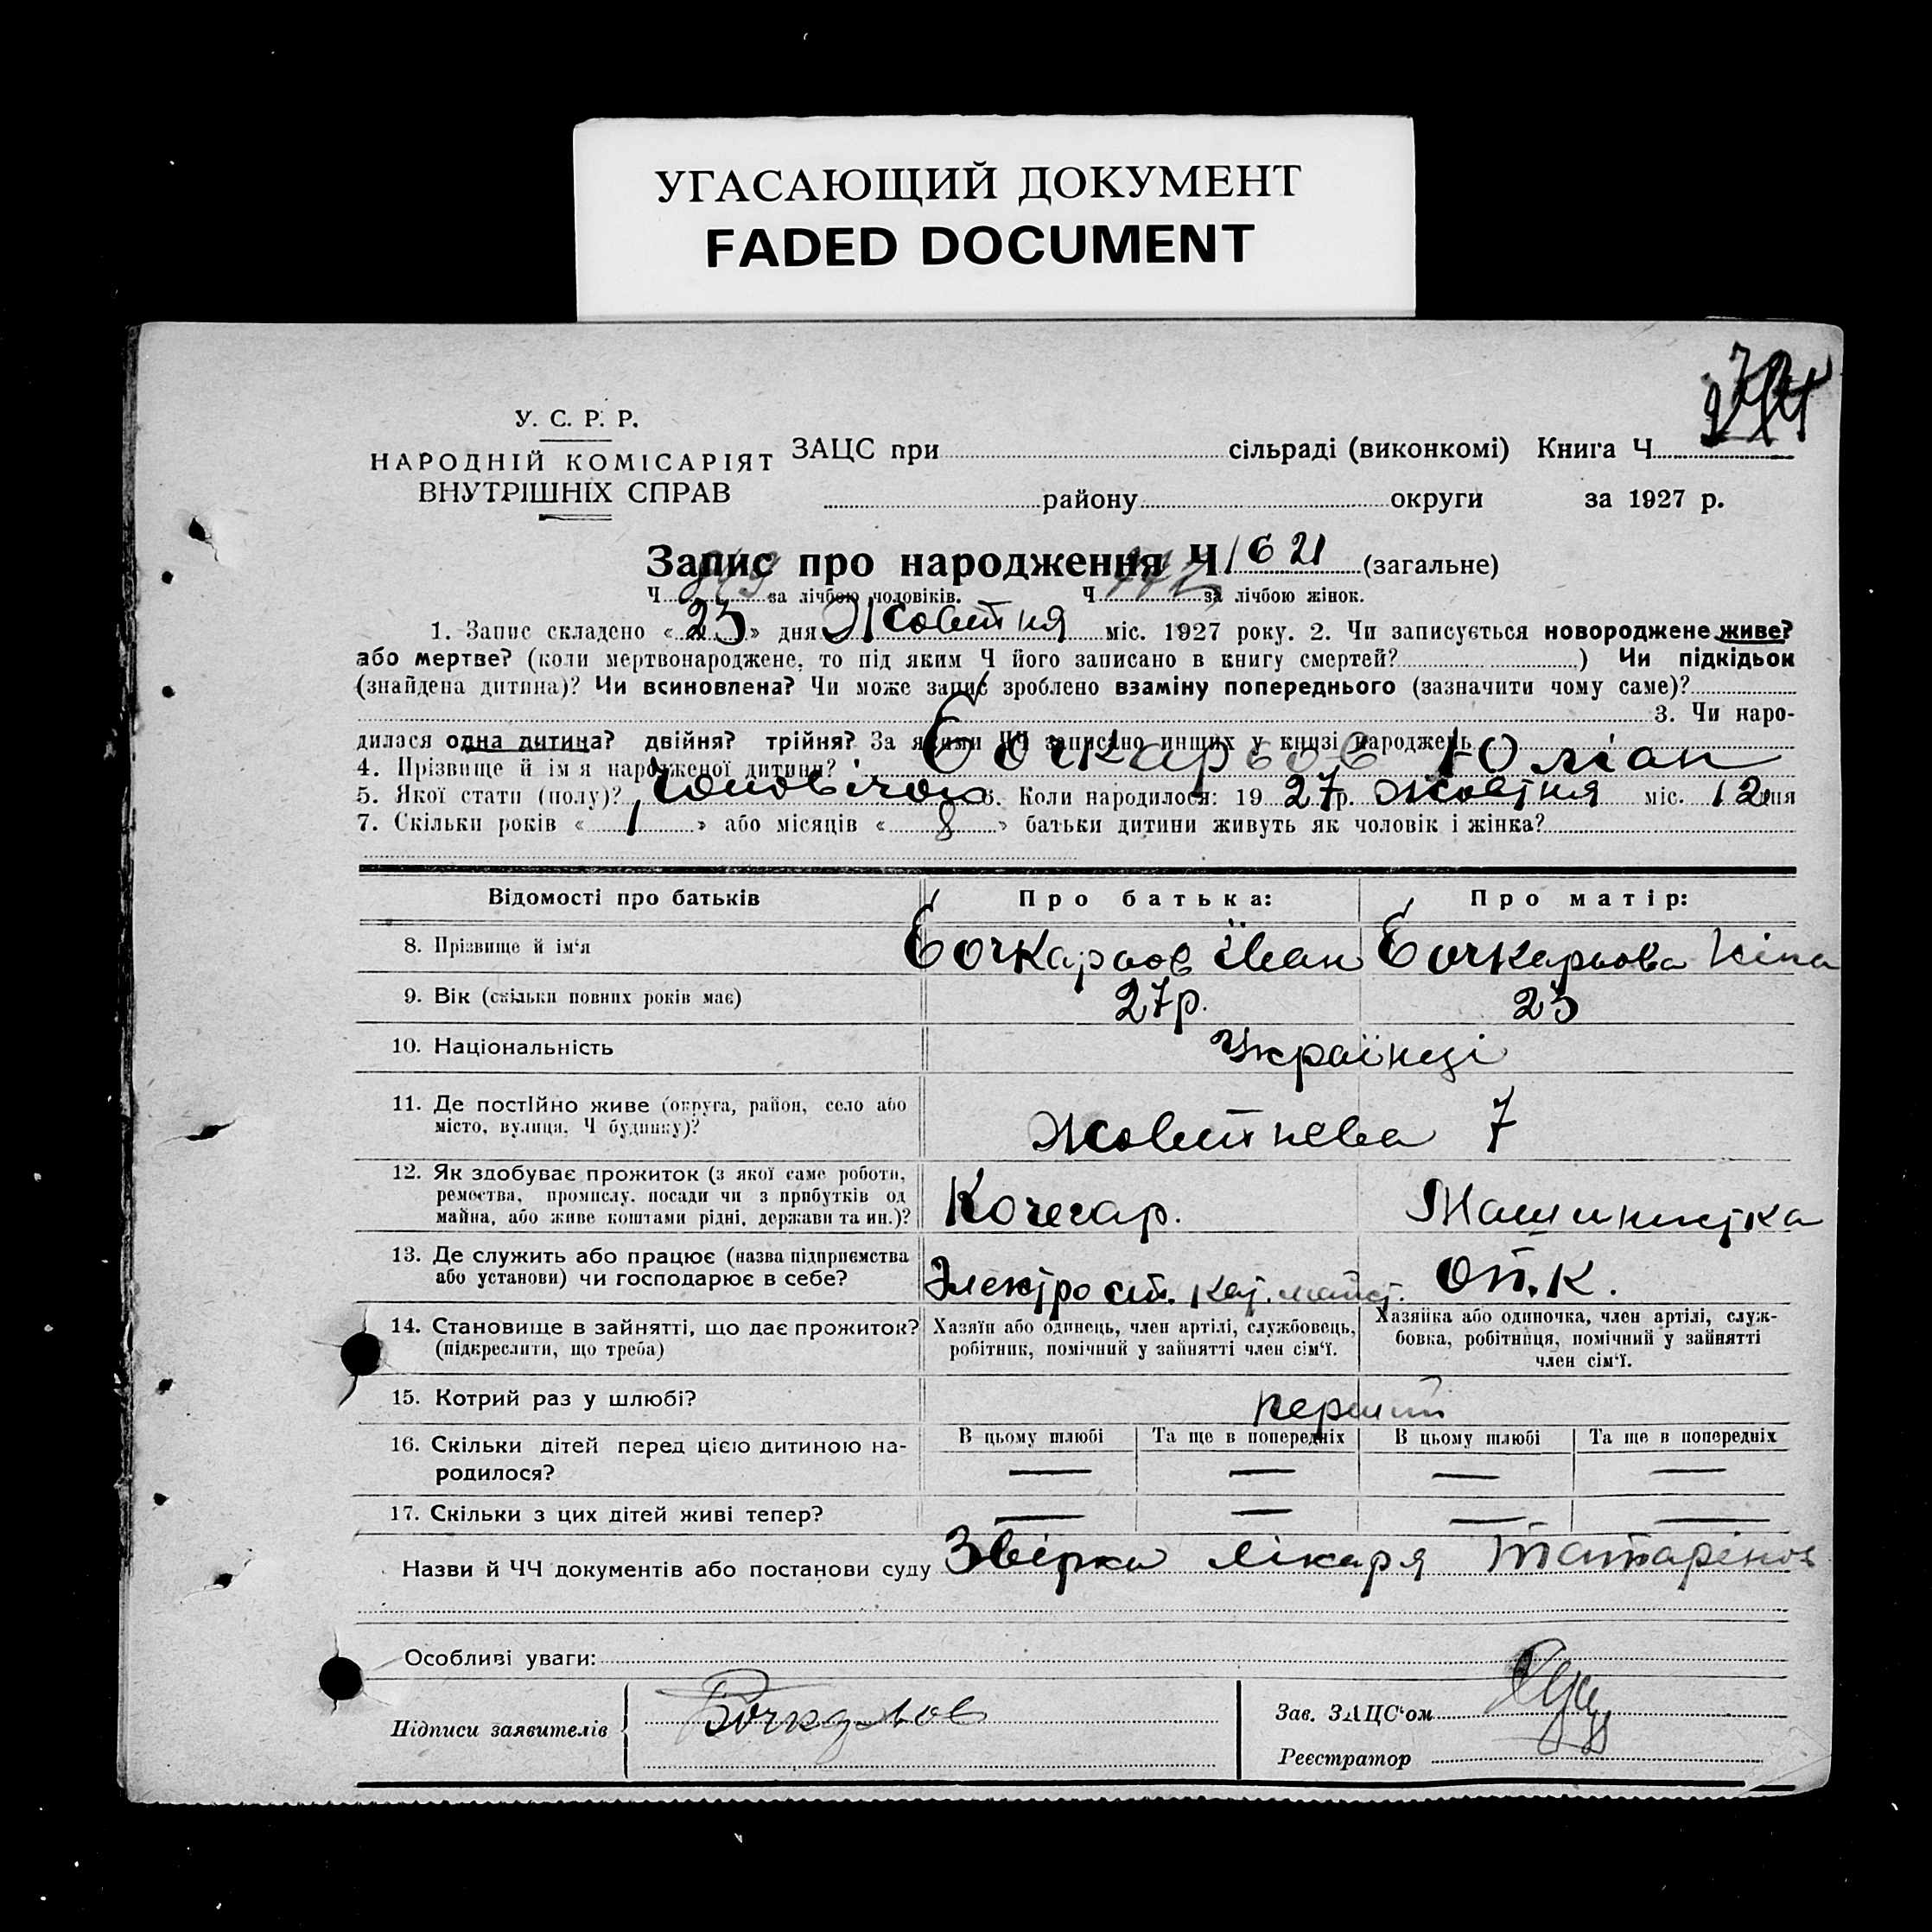 УГАСАЮЩИЙ ДОКУМЕНТ
FADED DOCUMENT
У. С. Р. Р.
НАРОДНІЙ КОМІСАРІЯТ
ВНУТРІШНІХ СПРАВ
ЗАЦС при сільраді (виконкомі) Книга Ч
району округи за 1927 р.
Запис про народження Ч 1621 (загальне)
Ч за лічбою чоловіків. Ч за лічбою жінок.
1. Запис складено « 23 » дня Жовтня міс. 1927 року. 2. Чи записується новороджене живе?
або мертве? (коли мертвонароджене, то під яким Ч його записано в книгу смертей? ) Чи підкідьок
(знайдена дитина)? Чи всиновлена? Чи може запис зроблено взаміну попереднього (зазначити чому саме)?
3. Чи наро-
дилася одна дитина? двійня? трійня? За якими ЧЧ записано инших у книзі народжень
4. Прізвище й ім'я народженої дитини? Бочкарьов Юліан
5. Якої стати (полу)? Чоловічої 6. Коли народилося: 19 27 р. Жовтня міс. 12 дня
7. Скільки років « 1 » або місяців « 8 » батьки дитини живуть як чоловік і жінка?
Відомості про батьків Про батька: Про матір:
8. Прізвище й ім'я Бочкарьов Іван Бочкарьова Ніна
9. Вік (скільки повних років має) 27 р. 23
10. Національність Українці
11. Де постійно живе (округа, район, село або
місто, вулиця, Ч будинку)? Жовтнева 7
12. Як здобуває прожиток (з якої саме роботи,
ремества, промислу, посади чи з прибутків од
майна, або живе коштами рідні, держави та ин.)? Кочегар. Машиністка
13. Де служить або працює (назва підприємства
або установи) чи господарює в себе? Электро ст. О.П.К.
14. Становище в зайнятті, що дає прожиток?
(підкреслити, що треба)
Хазяїн або одинець, член артілі, службовець,
робітник, помічний у зайнятті член сім'ї.
Хазяйка або одиночка, член артілі, служ-
бовка, робітниця, помічний у зайнятті
член сім'ї.
15. Котрий раз у шлюбі? перший
16. Скільки дітей перед цією дитиною на-
родилося?
В цьому шлюбі Та ще в попередніх В цьому шлюбі Та ще в попередніх
— — — —
17. Скільки з цих дітей живі тепер? — — — —
Назви й ЧЧ документів або постанови суду лікаря Татарінов
Особливі уваги:
Підписи заявителів Бочкарьов
Зав. ЗАЦС'ом
Реєстратор